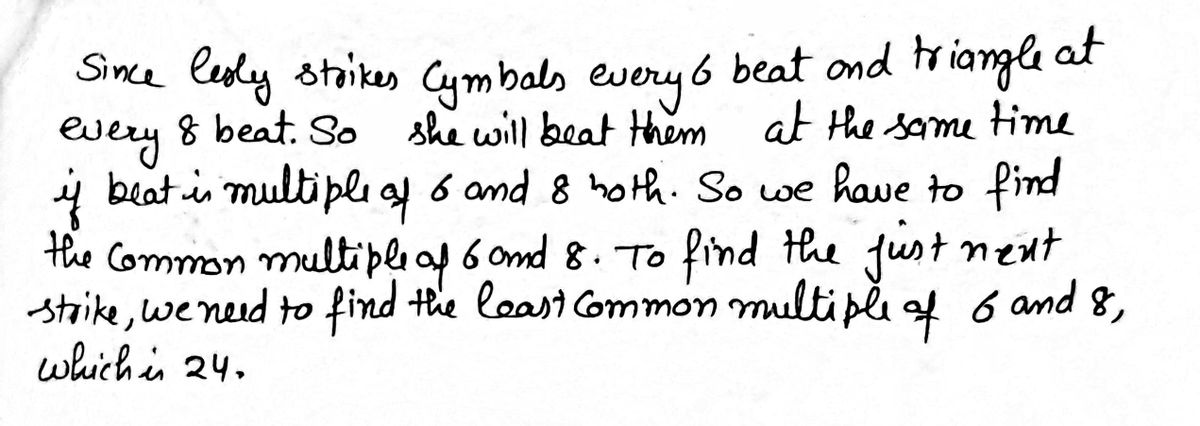 Since lesly strikes Cymbals every 6 beat and triangle at
every 8 beat. So she will beat them at the same time
if beat is multiple of 6 and 8 both. So we have to find
the Common multiple of 6 and 8. To find the just next
strike, we need to find the least Common multiple of 6 and 8,
which is 24.